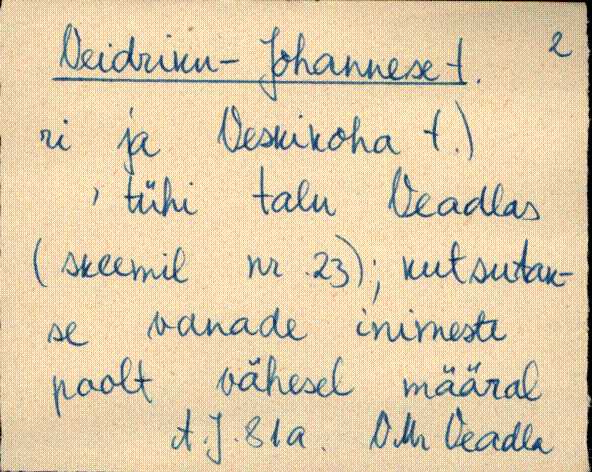 Veidriku-Johannese t. 2
ri ja Veskikoha t.)
, tühi talu Veadlas
(skeemil nr 23); kutsutak-
se vanade inimeste
poolt vähesel määral
A.J. 81a. VMr Veadla